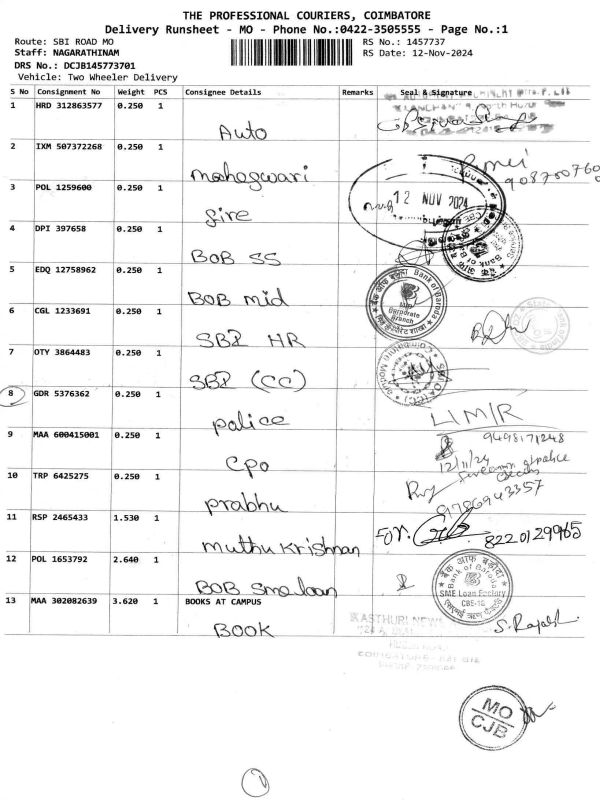 THE PROFESSIONAL COURIERS, COIMBATORE
Delivery Runsheet - MO - Phone No.:0422-3505555 - Page No.:1
Route: SBI ROAD MO RS No.: 1457737
Staff: NAGARATHINAM RS Date: 12-Nov-2024
DRS No.: DCJB145773701
Vehicle: Two Wheeler Delivery
S No Consignment No Weight PCS Consignee Details Remarks Seal & Signature
1 HRD 312863577 0.250 1
Auto
2 IXM 507372268 0.250 1
mahagwari
908700760
3 POL 1259600 0.250 1
12 NOV 2024
fire
4 DPI 397658 0.250 1
BOB SS
5 EDQ 12758962 0.250 1
Bank of Baroda
BOB mid
Mid Corporate Branch
6 CGL 1233691 0.250 1
SBI HR
7 OTY 3864483 0.250 1
SBI (CC)
8 GDR 5376362 0.250 1
police
LIM/R
9 MAA 600415001 0.250 1
9498171248
CPO
12/11/24
10 TRP 6425275 0.250 1
prabhu
9786943357
11 RSP 2465433 1.530 1
muthu krishnan
For. 8220129965
12 POL 1653792 2.640 1
BOB sme loan
बैंक ऑफ़ बड़ौदा
Bank of Baroda
SME Loan Factory
CBE-18
13 MAA 302082639 3.620 1 BOOKS AT CAMPUS
BOOK
KASTHURI NEWS
S. Rajesh
MO
CJB